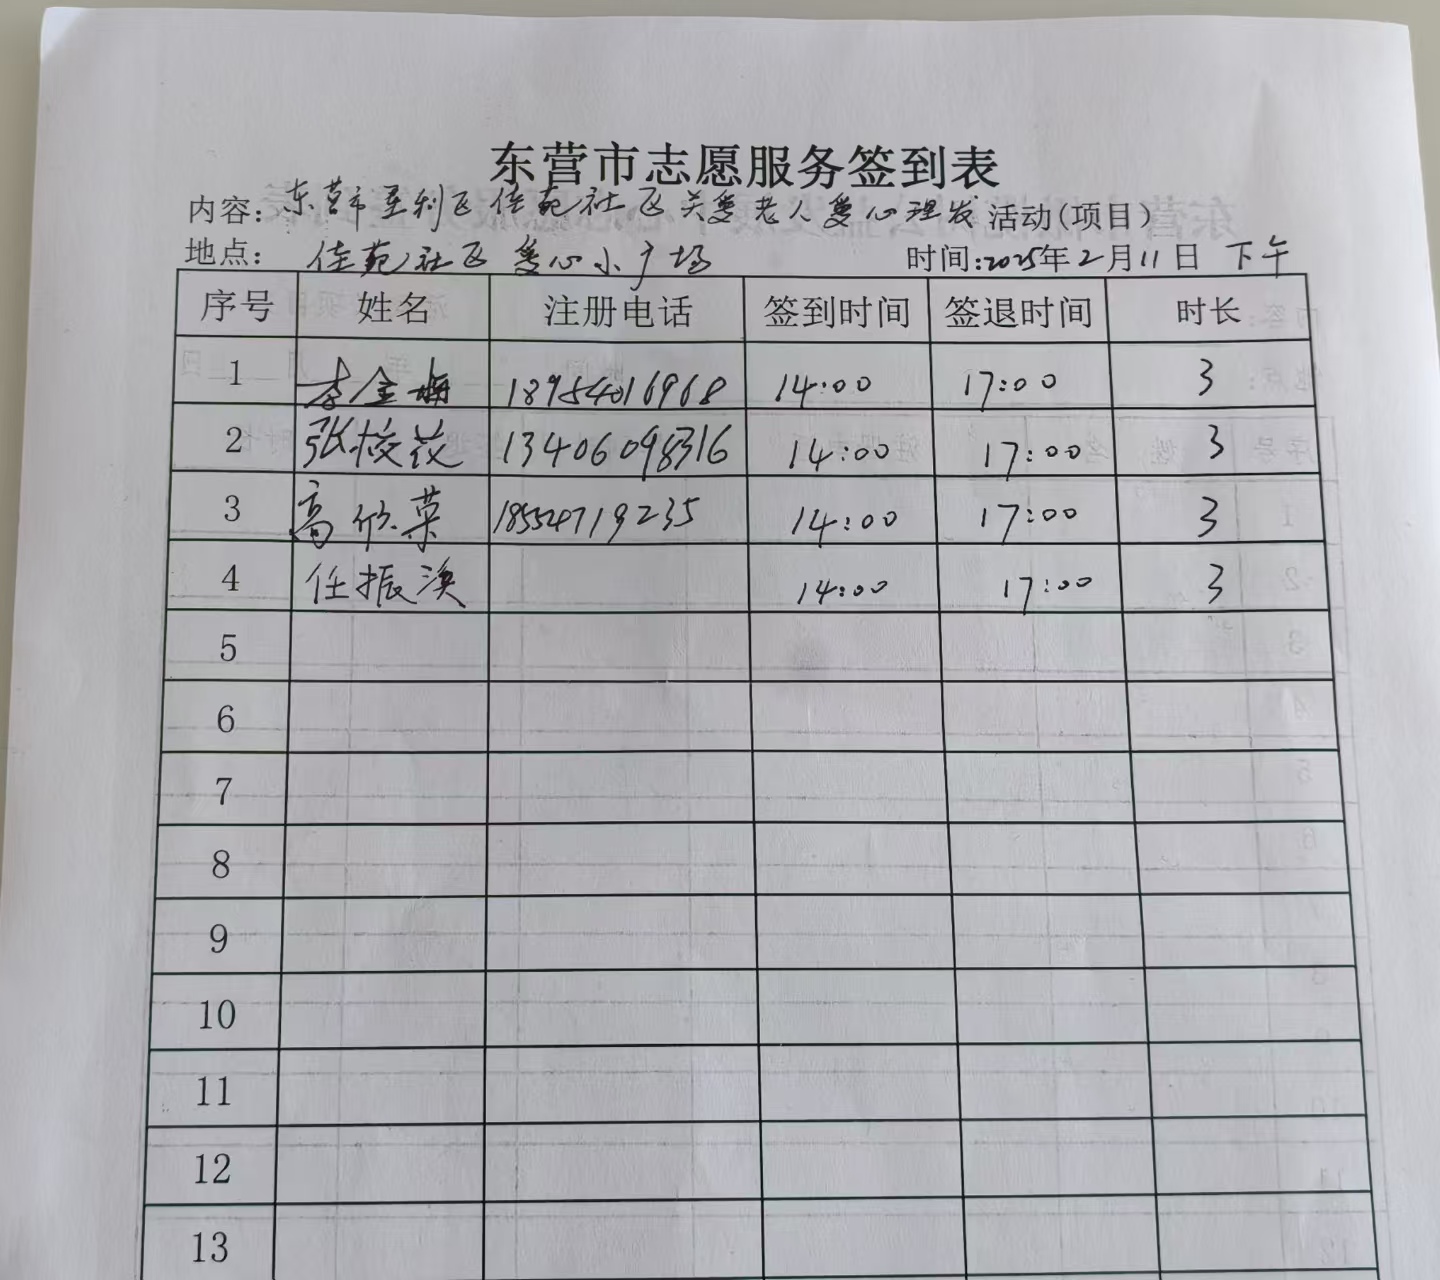 东营市志愿服务签到表
内容: 东营市垦利区佳苑社区关爱老人爱心理发 活动(项目)
地点: 佳苑社区爱心小广场 时间:2025年2月11日 下午
序号 姓名 注册电话 签到时间 签退时间 时长
1 李金梅 18954016968 14:00 17:00 3
2 张校花 13406098316 14:00 17:00 3
3 高欣菜 18554719235 14:00 17:00 3
4 任振涣 14:00 17:00 3
5
6
7
8
9
10
11
12
13